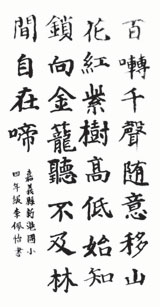 百囀千聲隨意移山
花紅紫樹高低始知
鎖向金籠聽不及林
間自在啼
嘉義縣國小
四年級李佩怡書